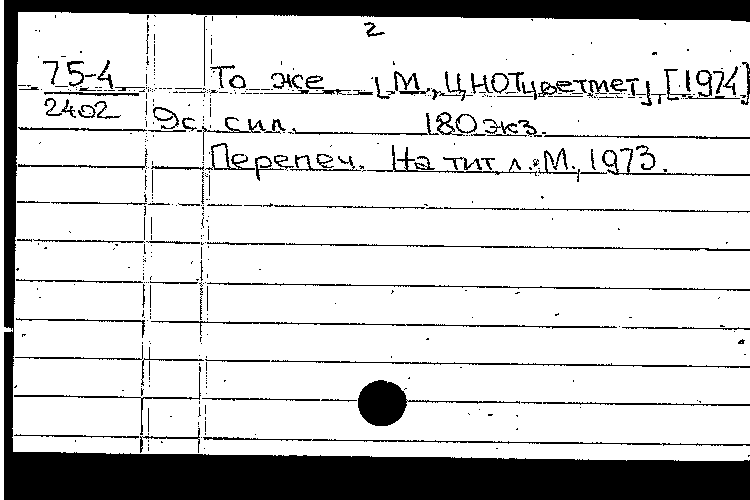 2
75-4 То же [М., ЦНОТцветмет], [1974]
2402 Эс. сил. 180 экз.
Перепеч. На тит. л.: М., 1973.